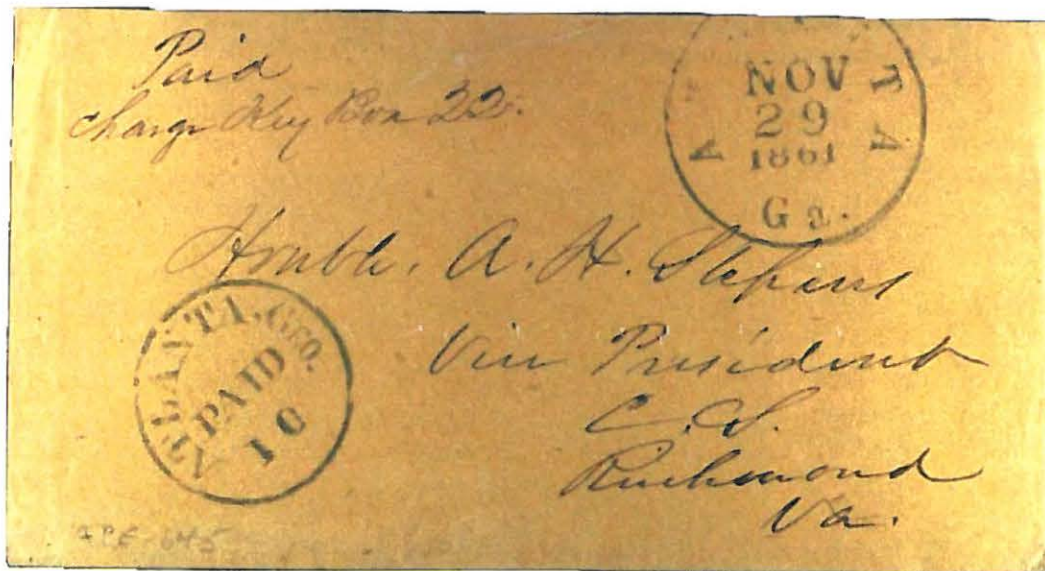 Paid
Charge Key Box 22.
NOV
29
1861
Ga.
Honble. A. H. Stephens
Vice President
C.S.
Richmond
Va.
ATLANTA, GEO.
PAID
10